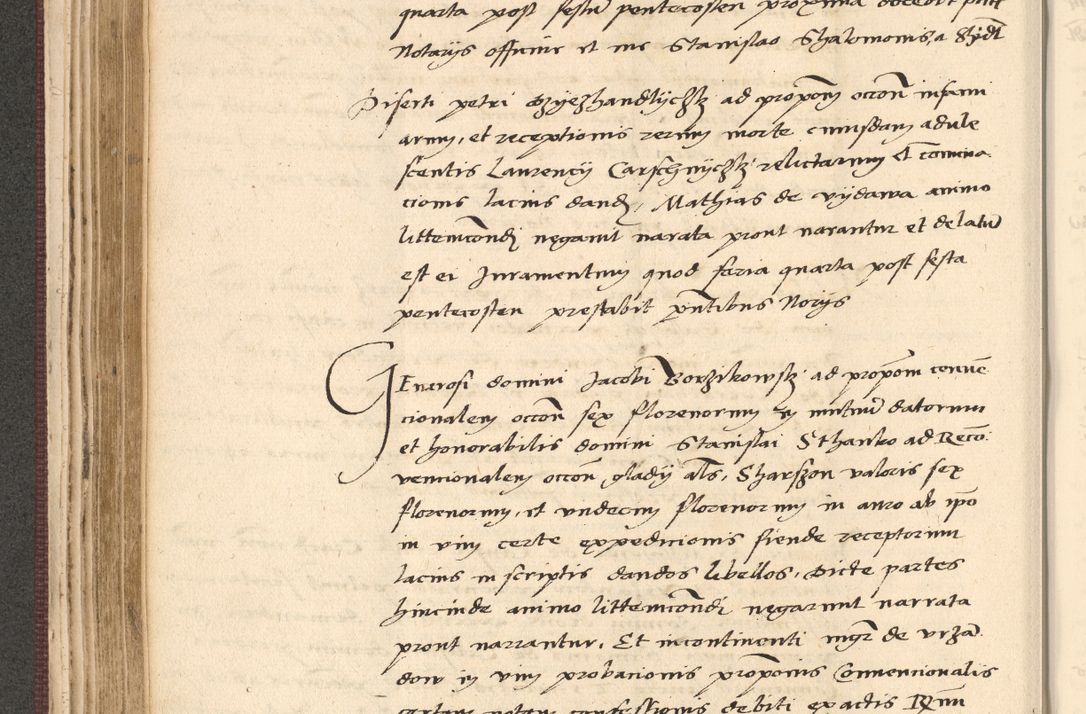 quarta post festum pentecosten proxima
Notarijs officine et me Stanislao Schalomonis a
Diserti petri ad propom occon infami
armi, et receptionis rerum morte cuiusdam adule
scentis Laurencij relictarum et comina
cionis lacius dand, Mathias de vydawa animo
littemcond negavit narata prout narantur et delatum
est ei Juramentum quod feria quarta post festa
pentecosten prestabit pntibus Norijs
Generosi domini Jacobi Borzikowskj ad propom convē
cionalem occon sex florenorum in mutuum datorum
et honorabilis domini Stanislai Sthanko ad Reco:
vencionalem occon gladij als, Sharszon valoris sex
florenorum, et vndecim florenorum in auro ab ipo
in vim certe expedicionis fiende receptorum
lacius in scriptis dandos libellos, Dicte partes
hincinde animo littemcondi negarunt narrata
prout narrantur, Et incontinenti mgr de
dow in vim probacionis proponis Convencionalis
certam notam confessionis debiti ex actis